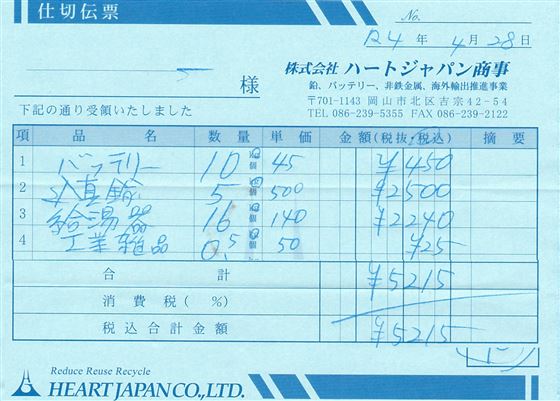 仕切伝票
No.
R4年 4月 28日
様
株式会社 ハートジャパン商事
鉛、バッテリー、非鉄金属、海外輸出推進事業
〒701-1143 岡山市北区吉宗42-54
TEL 086-239-5355 FAX 086-239-2122
下記の通り受領いたしました
項 品名 数量 単価 金額(税抜・税込) 摘要
1 バッテリー 10 個 45 ¥450
2 込真鍮 5 個 500 ¥2500
3 給湯器 16 個 140 ¥2240
4 工業雑品 0.5 個 50 ¥25
合計 ¥5215
消費税( %)
税込合計金額 ¥5215
Reduce Reuse Recycle
HEART JAPAN CO.,LTD.